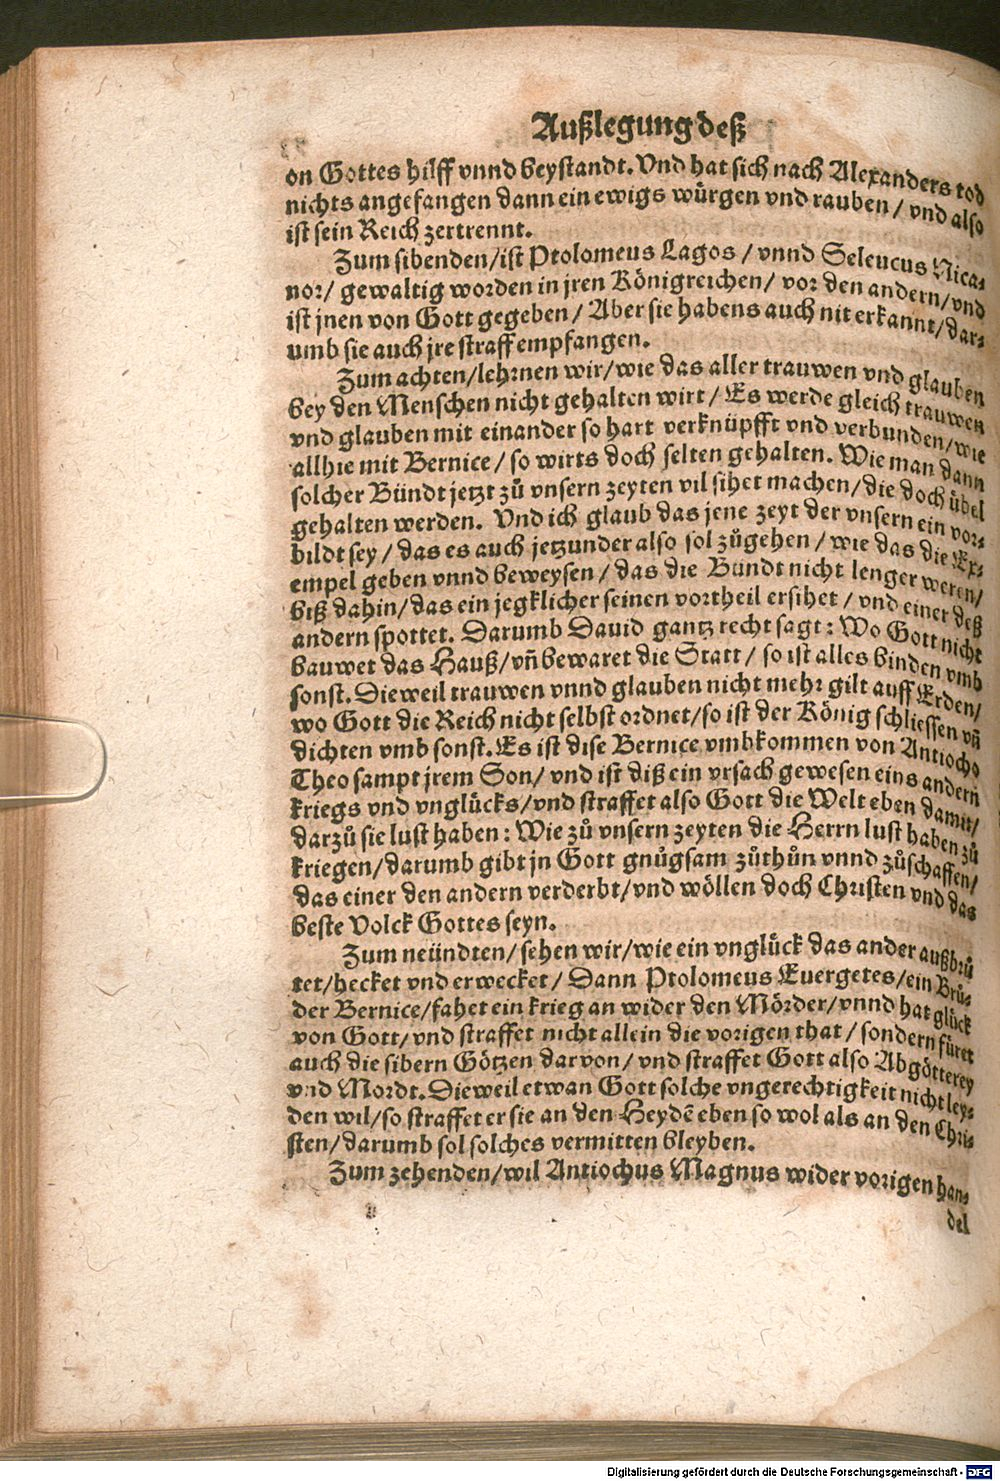 Außlegung deß
on Gottes hilff vnnd beystandt. Vnd hat sich nach Alexanders tod
nichts angefangen dann ein ewigs wuͤrgen vnd rauben / vnd also
ist sein Reich zertrennt.
Zum sibenden/ist Ptolomeus Lagos / vnnd Seleucus Nica⸗
nor/ gewaltig worden in jren Koͤnigreichen/ vor den andern/vnd
ist jnen von Gott gegeben/ Aber sie habens auch nit erkannt/dar⸗
umb sie auch jre straff empfangen.
Zum achten/lehrnen wir/wie das aller trauwen vnd glauben
bey den Menschen nicht gehalten wirt / Es werde gleich trauwen
vnd glauben mit einander so hart verknuͤpfft vnd verbunden/wie
allhie mit Bernice/ so wirts doch selten gehalten. Wie man dann
solcher Bündt jetzt zuͦ vnsern zeyten vil sihet machen/die doch uͤbel
gehalten werden. Vnd ich glaub das jene zeyt der vnsern ein vor⸗
bildt sey / das es auch jetzunder also sol zuͦgehen / wie das die Ex⸗
empel geben vnnd beweysen / das die Bündt nicht lenger weren/
biß dahin/das ein jegklicher seinen vortheil ersihet / vnd einer deß
andern spottet. Darumb Dauid gantz recht sagt: Wo Gott nicht
bauwet das Hauß/vñ bewaret die Statt / so ist alles binden vmb
sonst. Dieweil trauwen vnnd glauben nicht mehr gilt auff Erden/
wo Gott die Reich nicht selbst ordnet/so ist der Koͤnig schliessen vñ
dichten vmb sonst. Es ist dise Bernice vmbkommen von Antiocho
Theo sampt jrem Son/ vnd ist diß ein vrsach gewesen eins andern
kriegs vnd vngluͤcks/vnd straffet also Gott die Welt eben damit/
darzuͦ sie lust haben: Wie zuͦ vnsern zeyten die Herrn lust haben zuͦ
kriegen/darumb gibt jn Gott gnuͦgsam zuͦthuͦn vnnd zuͦschaffen/
das einer den andern verderbt/vnd woͤllen doch Christen vnd das
beste Volck Gottes seyn.
Zum neündten/ sehen wir/wie ein vngluͤck das ander außbruͤ
tet/hecket vnd erwecket / Dann Ptolomeus Euergetes/ein Bruͦ⸗
der Bernice/fahet ein krieg an wider den Moͤrder/vnnd hat gluͤck
von Gott/vnd straffet nicht allein die vorigen that / sondern fuͤret
auch die sibern Goͤtzen darvon / vnd straffet Gott also Abgoͤtterey
vnd Mordt. Dieweil etwan Gott solche vngerechtigkeit nicht ley⸗
den wil/so straffet er sie an den Heydẽ eben so wol als an den Chri⸗
sten/darumb sol solches vermitten bleyben.
Zum zehenden/wil Antiochus Magnus wider vorigen han⸗
del
Digitalisierung gefördert durch die Deutsche Forschungsgemeinschaft - DFG